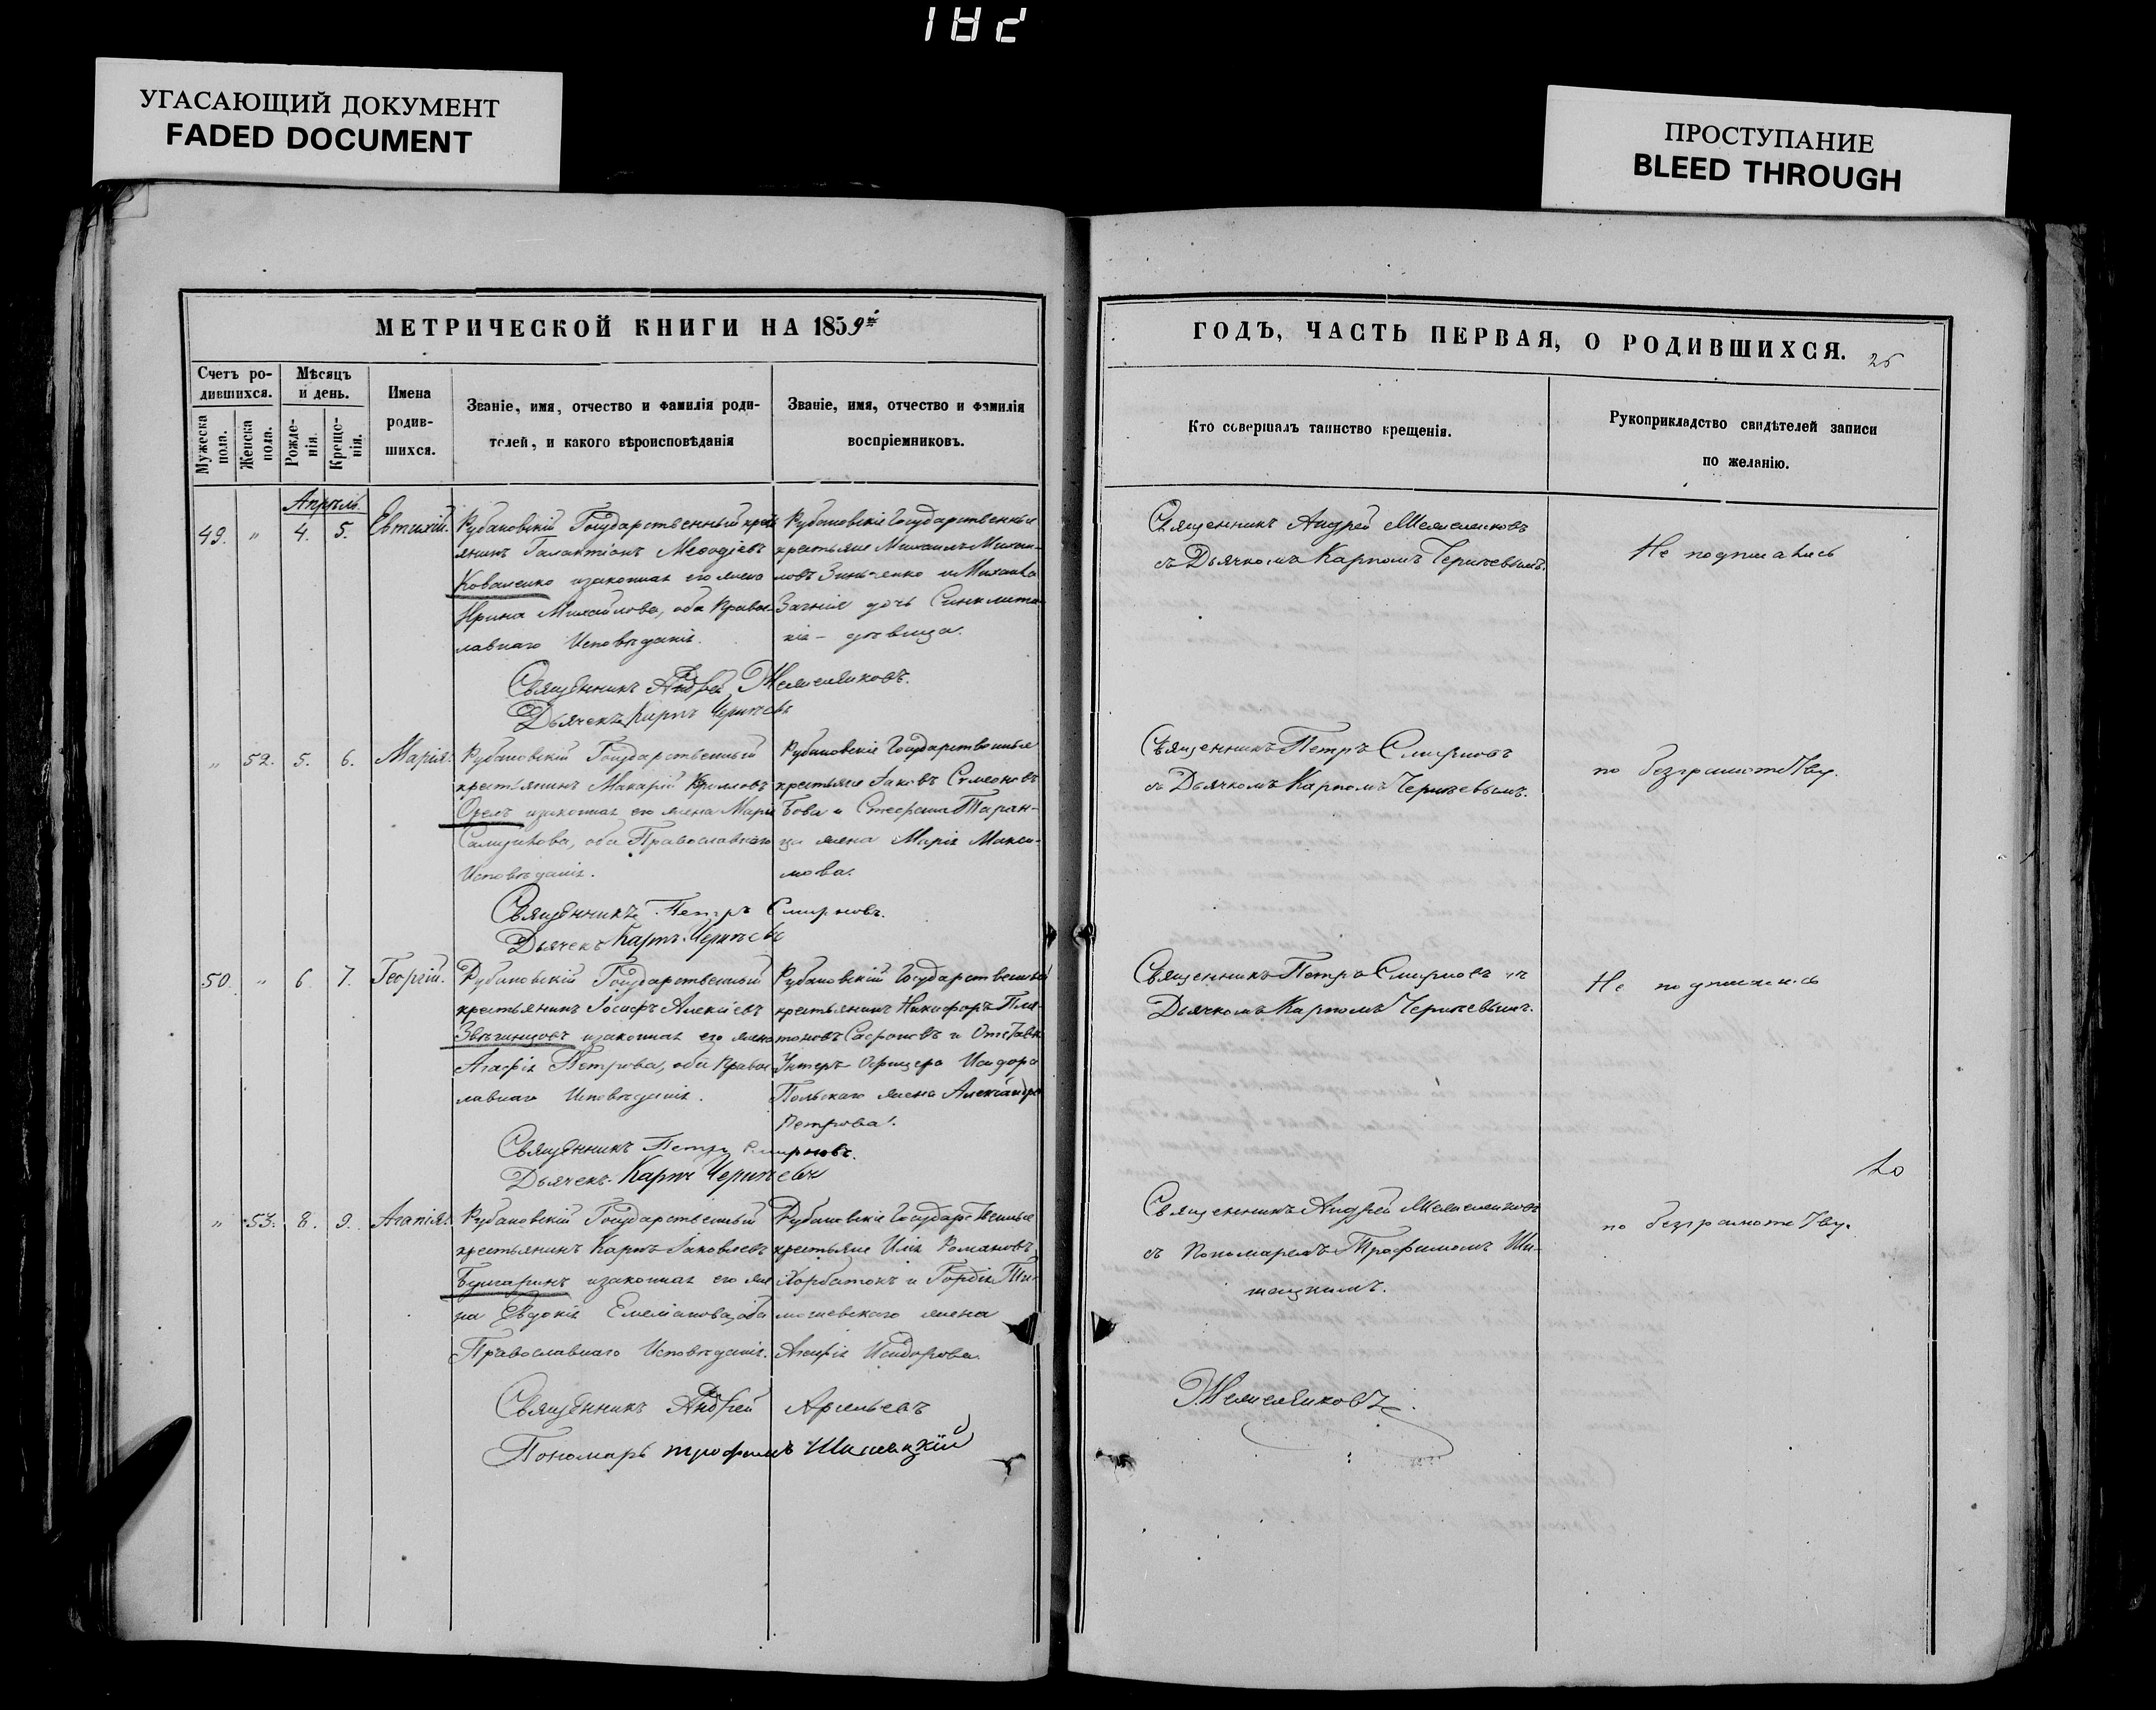 182
УГАСАЮЩИЙ ДОКУМЕНТ
FADED DOCUMENT
ПРОСТУПАНИЕ
BLEED THROUGH
МЕТРИЧЕСКОЙ КНИГИ НА 1859й
Счетъ ро-
дившихся.
Мужеска
пола.
Женска
пола.
Мѣсяцъ
и день.
Рожде-
нія.
Креще-
нія.
Имена
родив-
шихся.
Званіе, имя, отчество и фамилія роди-
телей, и какого вѣроисповѣданія
Званіе, имя, отчество и фамилія
воспріемниковъ.
ГОДЪ, ЧАСТЬ ПЕРВАЯ, О РОДИВШИХСЯ.
Кто совершалъ таинство крещенія.
Рукоприкладство свидѣтелей записи
по желанію.
Апрѣль.
49. " 4. 5. Евтихій.
Рубановскій Государственный крест
янинъ Галактіонъ Меѳодіевъ
Коваленко изаконная его жена
Ирина Михайлова, оба Правос
лавнаго Исповѣданія.
Рубановскіе Государственные
крестьяне Михаилъ Михаи-
ловъ Зинченко и Михаила
дочь Синклити-
кія - дѣвица.
Священникъ Андрей
съ Дьячкомъ Карпомъ
Не подписались
Священникъ Андрей
Дьячекъ Карпъ
" 52. 5. 6. Марія.
Рубановскій Государственный
крестьянинъ Макарій Кириловъ
Орелъ изаконная его жена Марія
оба Православнаго
Исповѣданія.
Рубановскіе Государственные
крестьяне Іаковъ Симеоновъ
Бова и Стефана Таран-
ца жена Марія Макси-
мова.
Священникъ Петръ Смирновъ
съ Дьячкомъ Карпомъ
по безграмотству.
Священникъ Петръ Смирновъ.
Дьячекъ Карпъ
50. " 6 7. Георгій.
Рубановскій Государственный
крестьянинъ Іосифъ Алексіевъ
Звѣгинцовъ изаконная его жена
Агафія Петрова, оба Правос
лавнаго Исповѣданія.
Рубановскій Государственный
крестьянинъ Никифоръ Пла-
тоновъ Сафоновъ и Отставн
Унтеръ Офицера Исидора
Польскаго жена Александра
Петрова.
Священникъ Петръ Смирновъ съ
Дьячкомъ Карпомъ
Не подписались
Священникъ Петръ Смирновъ.
Дьячекъ Карпъ
" 53. 8. 9. Агапія.
Рубановскій Государственный
крестьянинъ Карпъ Іаковлевъ
Булгаринъ изаконная его же
на Евдокія Емеліанова, оба
Православнаго Исповѣданія.
Рубановскіе Государственные
крестьяне Илія Романовъ
Горбатокъ и Гордія Ти-
мошевскаго жена
Агафія Исидорова.
Священникъ Андрей
съ Пономаремъ Трофимомъ
по безграмотству.
Священникъ Андрей
Пономарь Трофимъ